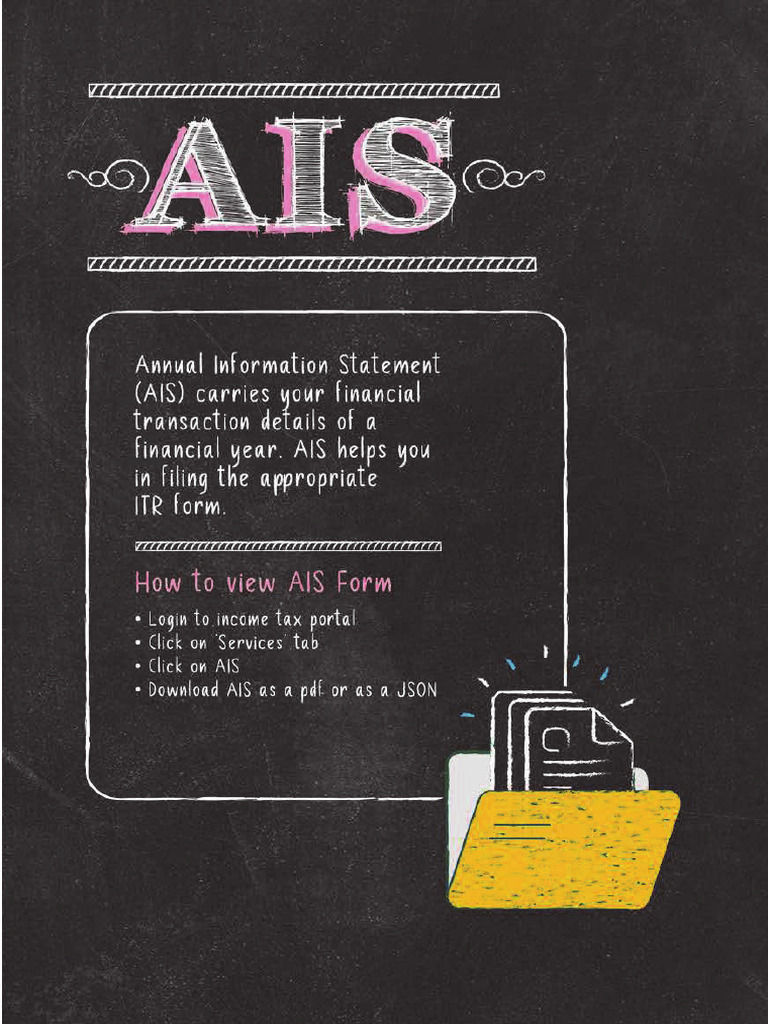 AIS
Annual Information Statement
(AIS) carries your financial
transaction details of a
financial year. AIS helps you
in filing the appropriate
ITR form.
How to view AIS Form
• Login to income tax portal
• Click on 'Services' tab
• Click on AIS
• Download AIS as a pdf or as a JSON